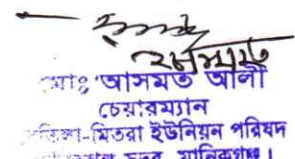 মোঃ আসমত আলী
চেয়ারম্যান
-মিতরা ইউনিয়ন পরিষদ
সদর, মানিকগঞ্জ।